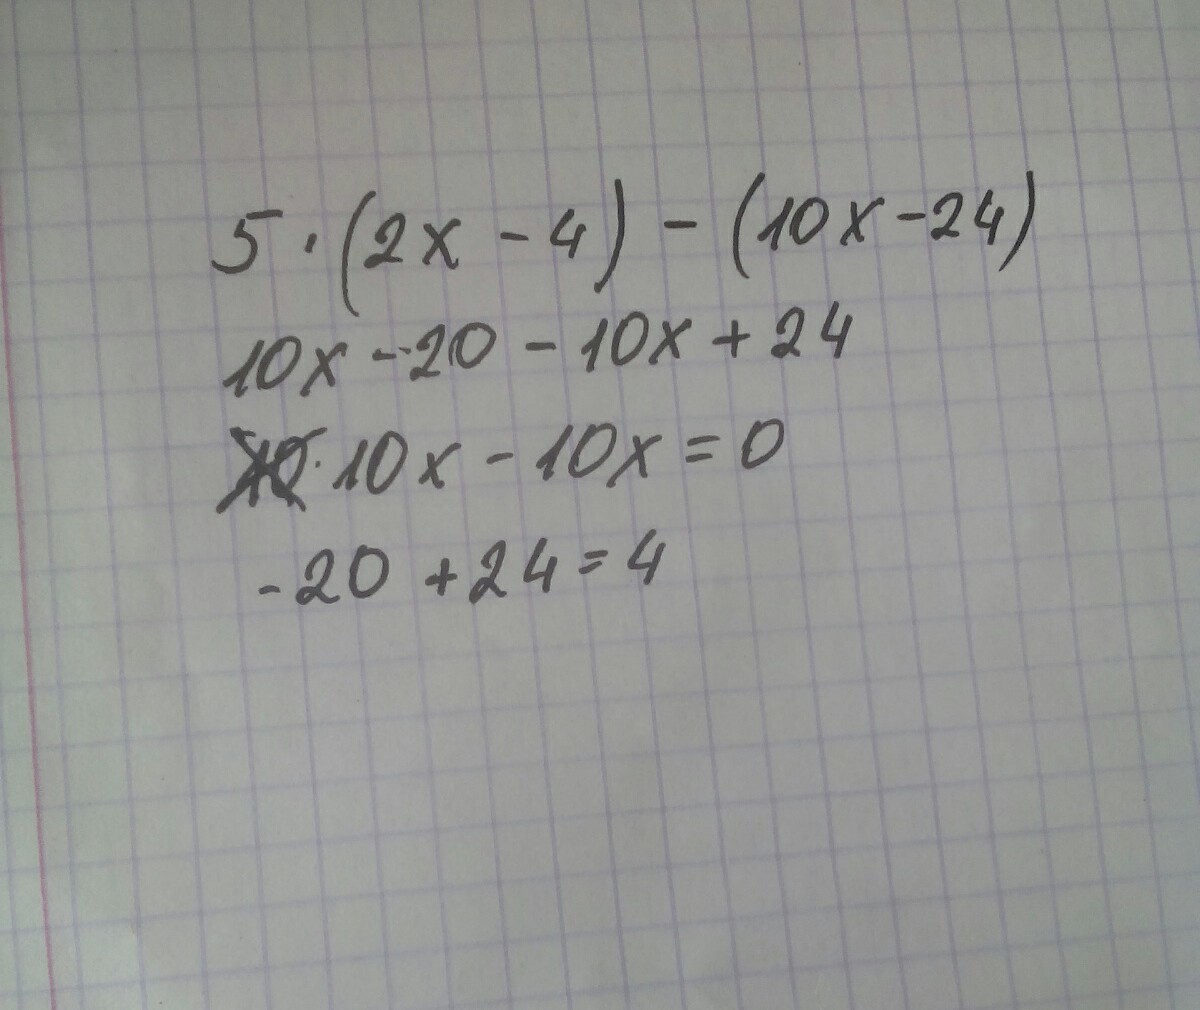 5 · (2x - 4) - (10x - 24)
10x - 20 - 10x + 24
10x - 10x = 0
-20 + 24 = 4